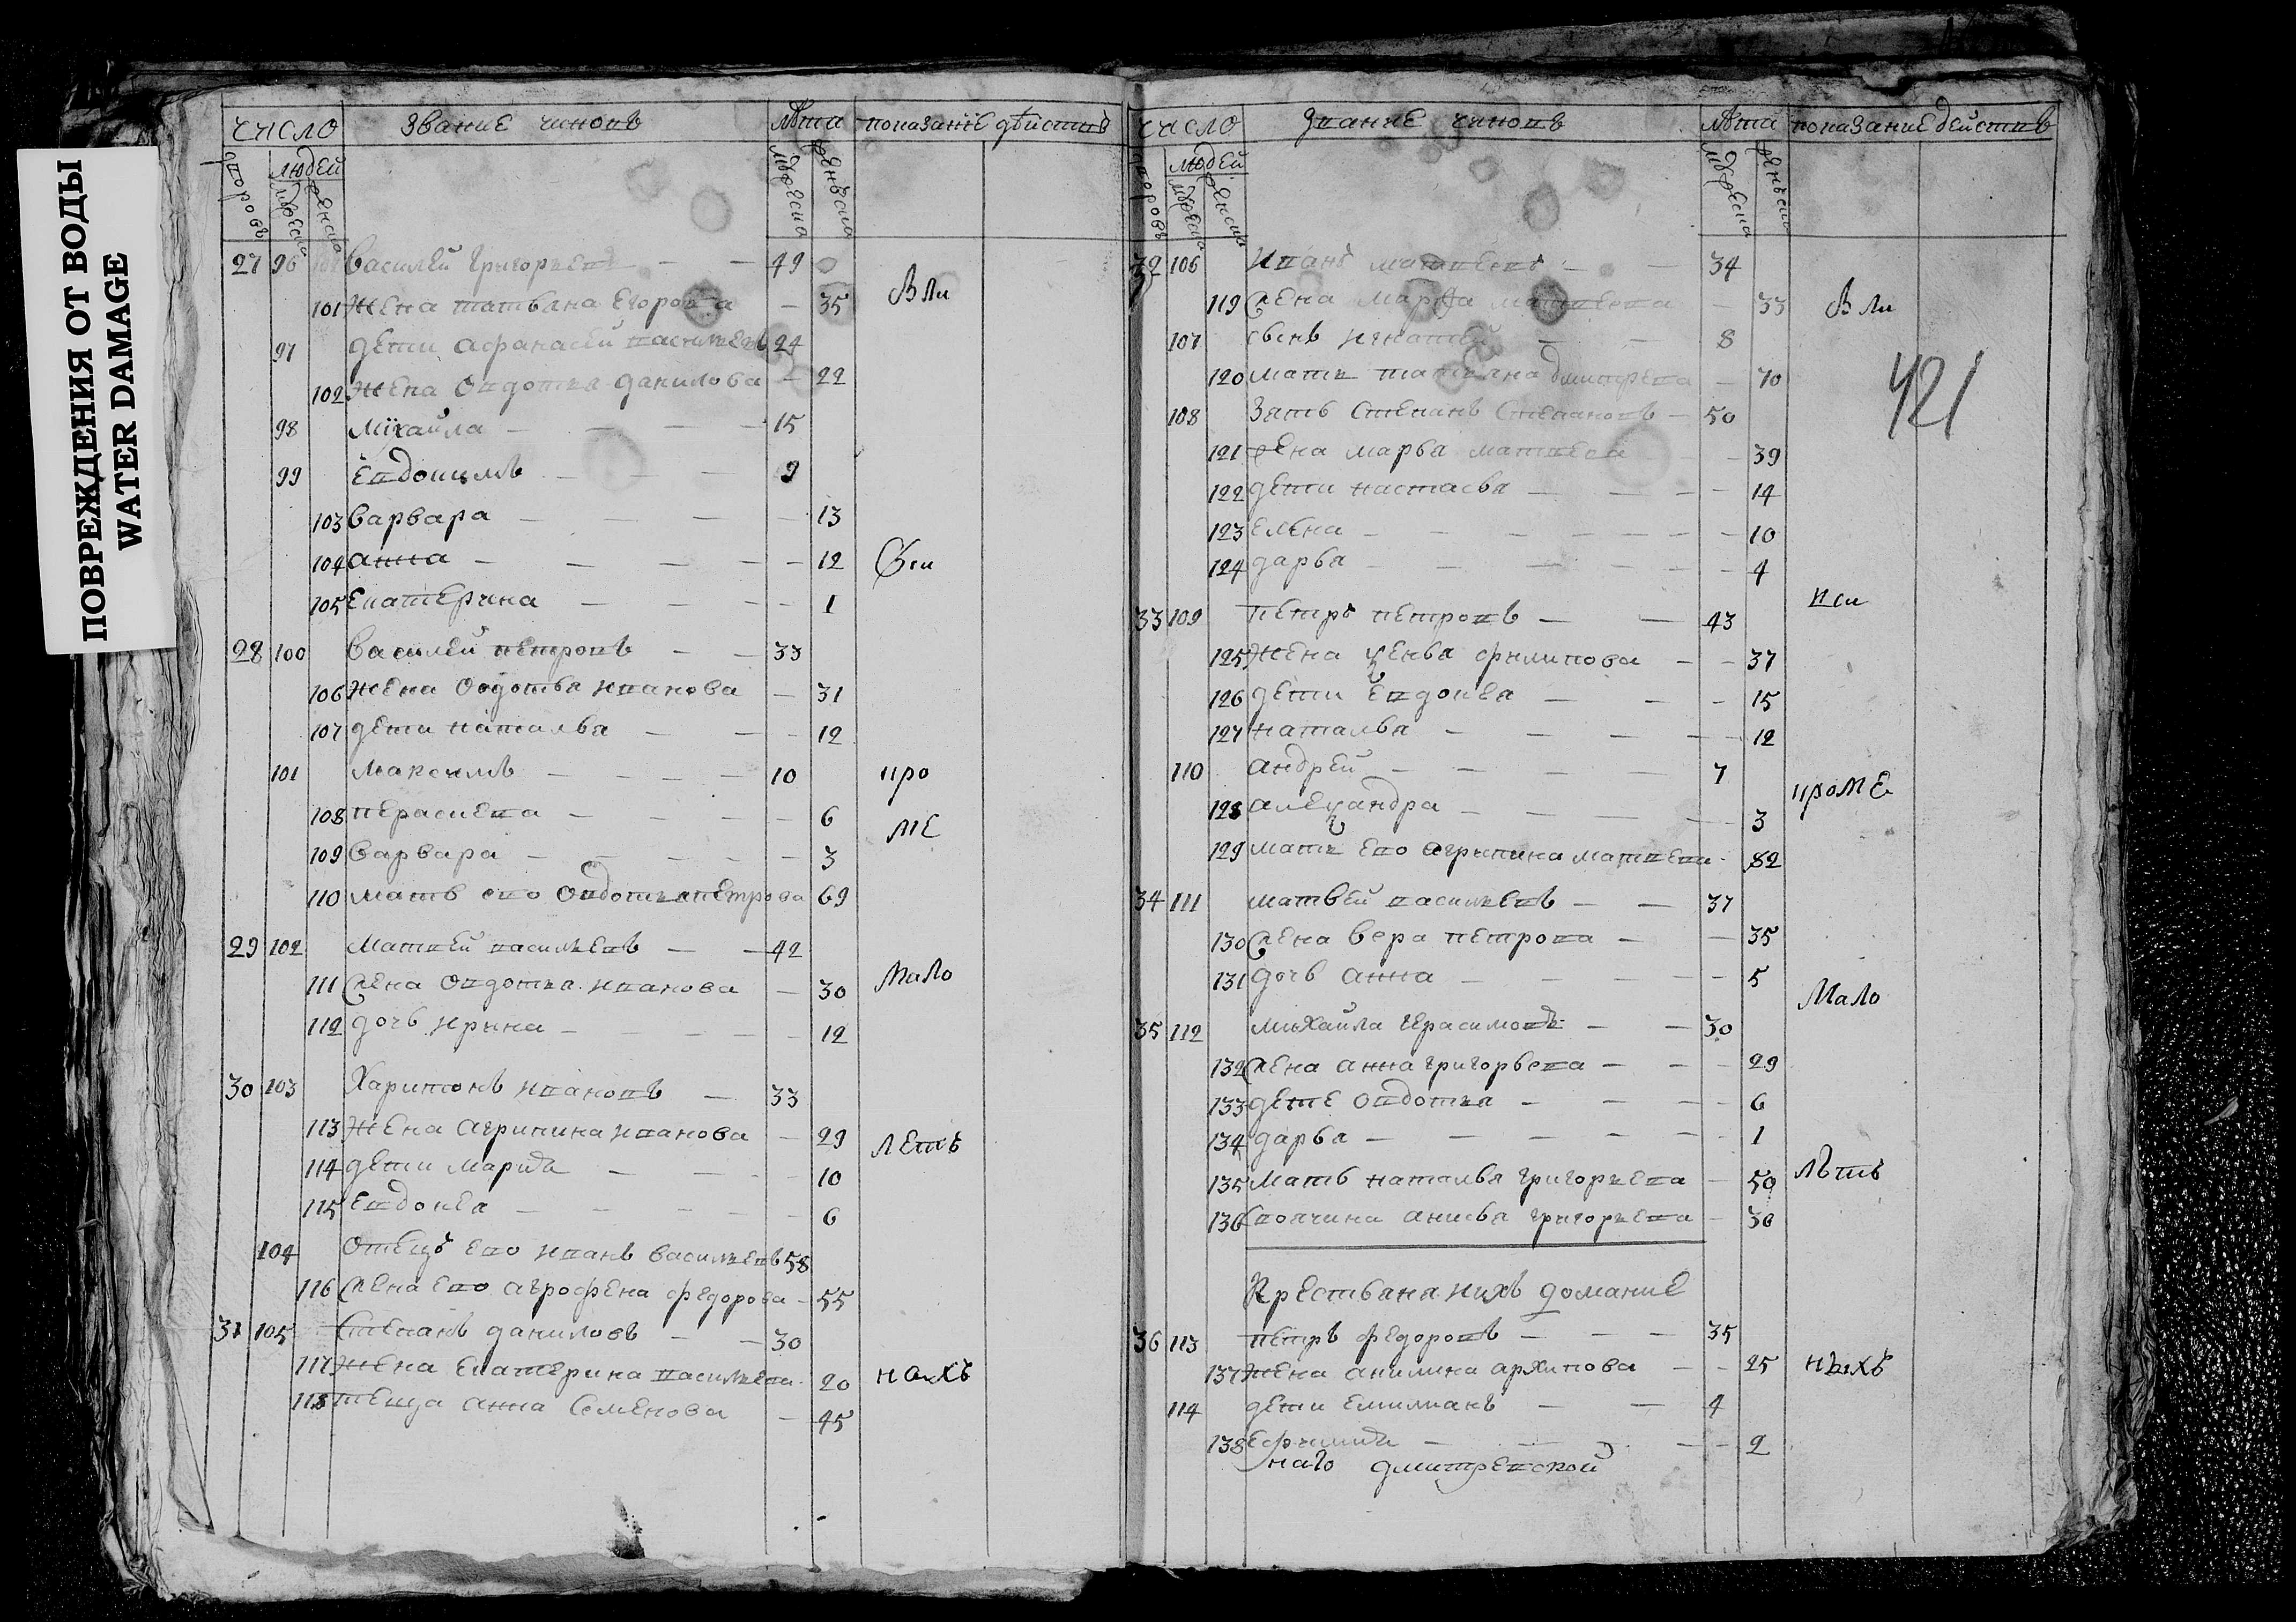 ПОВРЕЖДЕНИЯ ОТ ВОДЫ
WATER DAMAGE
число звание чиновъ лѣта показание действъ
дворовъ людей мужеска женска мужеска женска
27 96 Василей григорьевъ 49
101 жена татьяна Егорова 35
Были
97 дети афанасей васильевъ 24
102 жена овдотья данилова 22
98 Міхайла 15
99 Евдокимъ 9
103 варвара 13
104 анна 12
105 Екатерина 1
28 100 Василей петровъ 33
106 жена овдотья иванова 31
107 дети наталья 12
101 максимъ 10
про
108 перасиева 6
ме
109 варвара 3
110 мать ево овдотья петрова 69
29 102 матвей васильевъ 42
111 жена овдотья иванова 30
мало
112 дочь ирина 12
30 103 Харитонъ ивановъ 33
113 жена агрипина иванова 29
летъ
114 дети мария 10
115 Евдокея 6
104 отецъ ево иванъ васильевъ 58
116 жена ево агрофена федорова 55
31 105 степанъ даниловъ 30
117 жена Екатерина васильева 20
ныхъ
118 теща анна семенова 45
число звание чиновъ лѣта показание действъ
дворовъ людей мужеска женска мужеска женска
32 106 иванъ матвеевъ 34
119 жена марфа матвеева 33
421
107 сынъ игнатей 8
120 мать татьяна дмитрева 70
108 зять степанъ степановъ 50
121 жена марья матвеева 39
122 дети настасья 14
123 елена 10
124 дарья 4
33 109 петръ петровъ 43
125 жена ѯенья филипова 37
126 дети Евдокея 15
127 наталья 12
110 андрей 7
кроме
128 алеѯандра 3
129 мать ево агрипина матвева 82
34 111 матвей васильевъ 37
130 жена вера петрова 35
131 дочь анна 5
мало
35 112 михайла герасимовъ 30
132 жена анна григорьева 29
133 дете овдотья 6
134 дарья 1
135 мать наталья григорьева 50
лѣтъ
136 своячина анисья григорьева 30
Крестьяна ихъ домание
36 113 петръ федоровъ 35
137 жена акилина архипова 25
ныхъ
114 дети емилианъ 4
138 ефимия 2
наго дмитревской